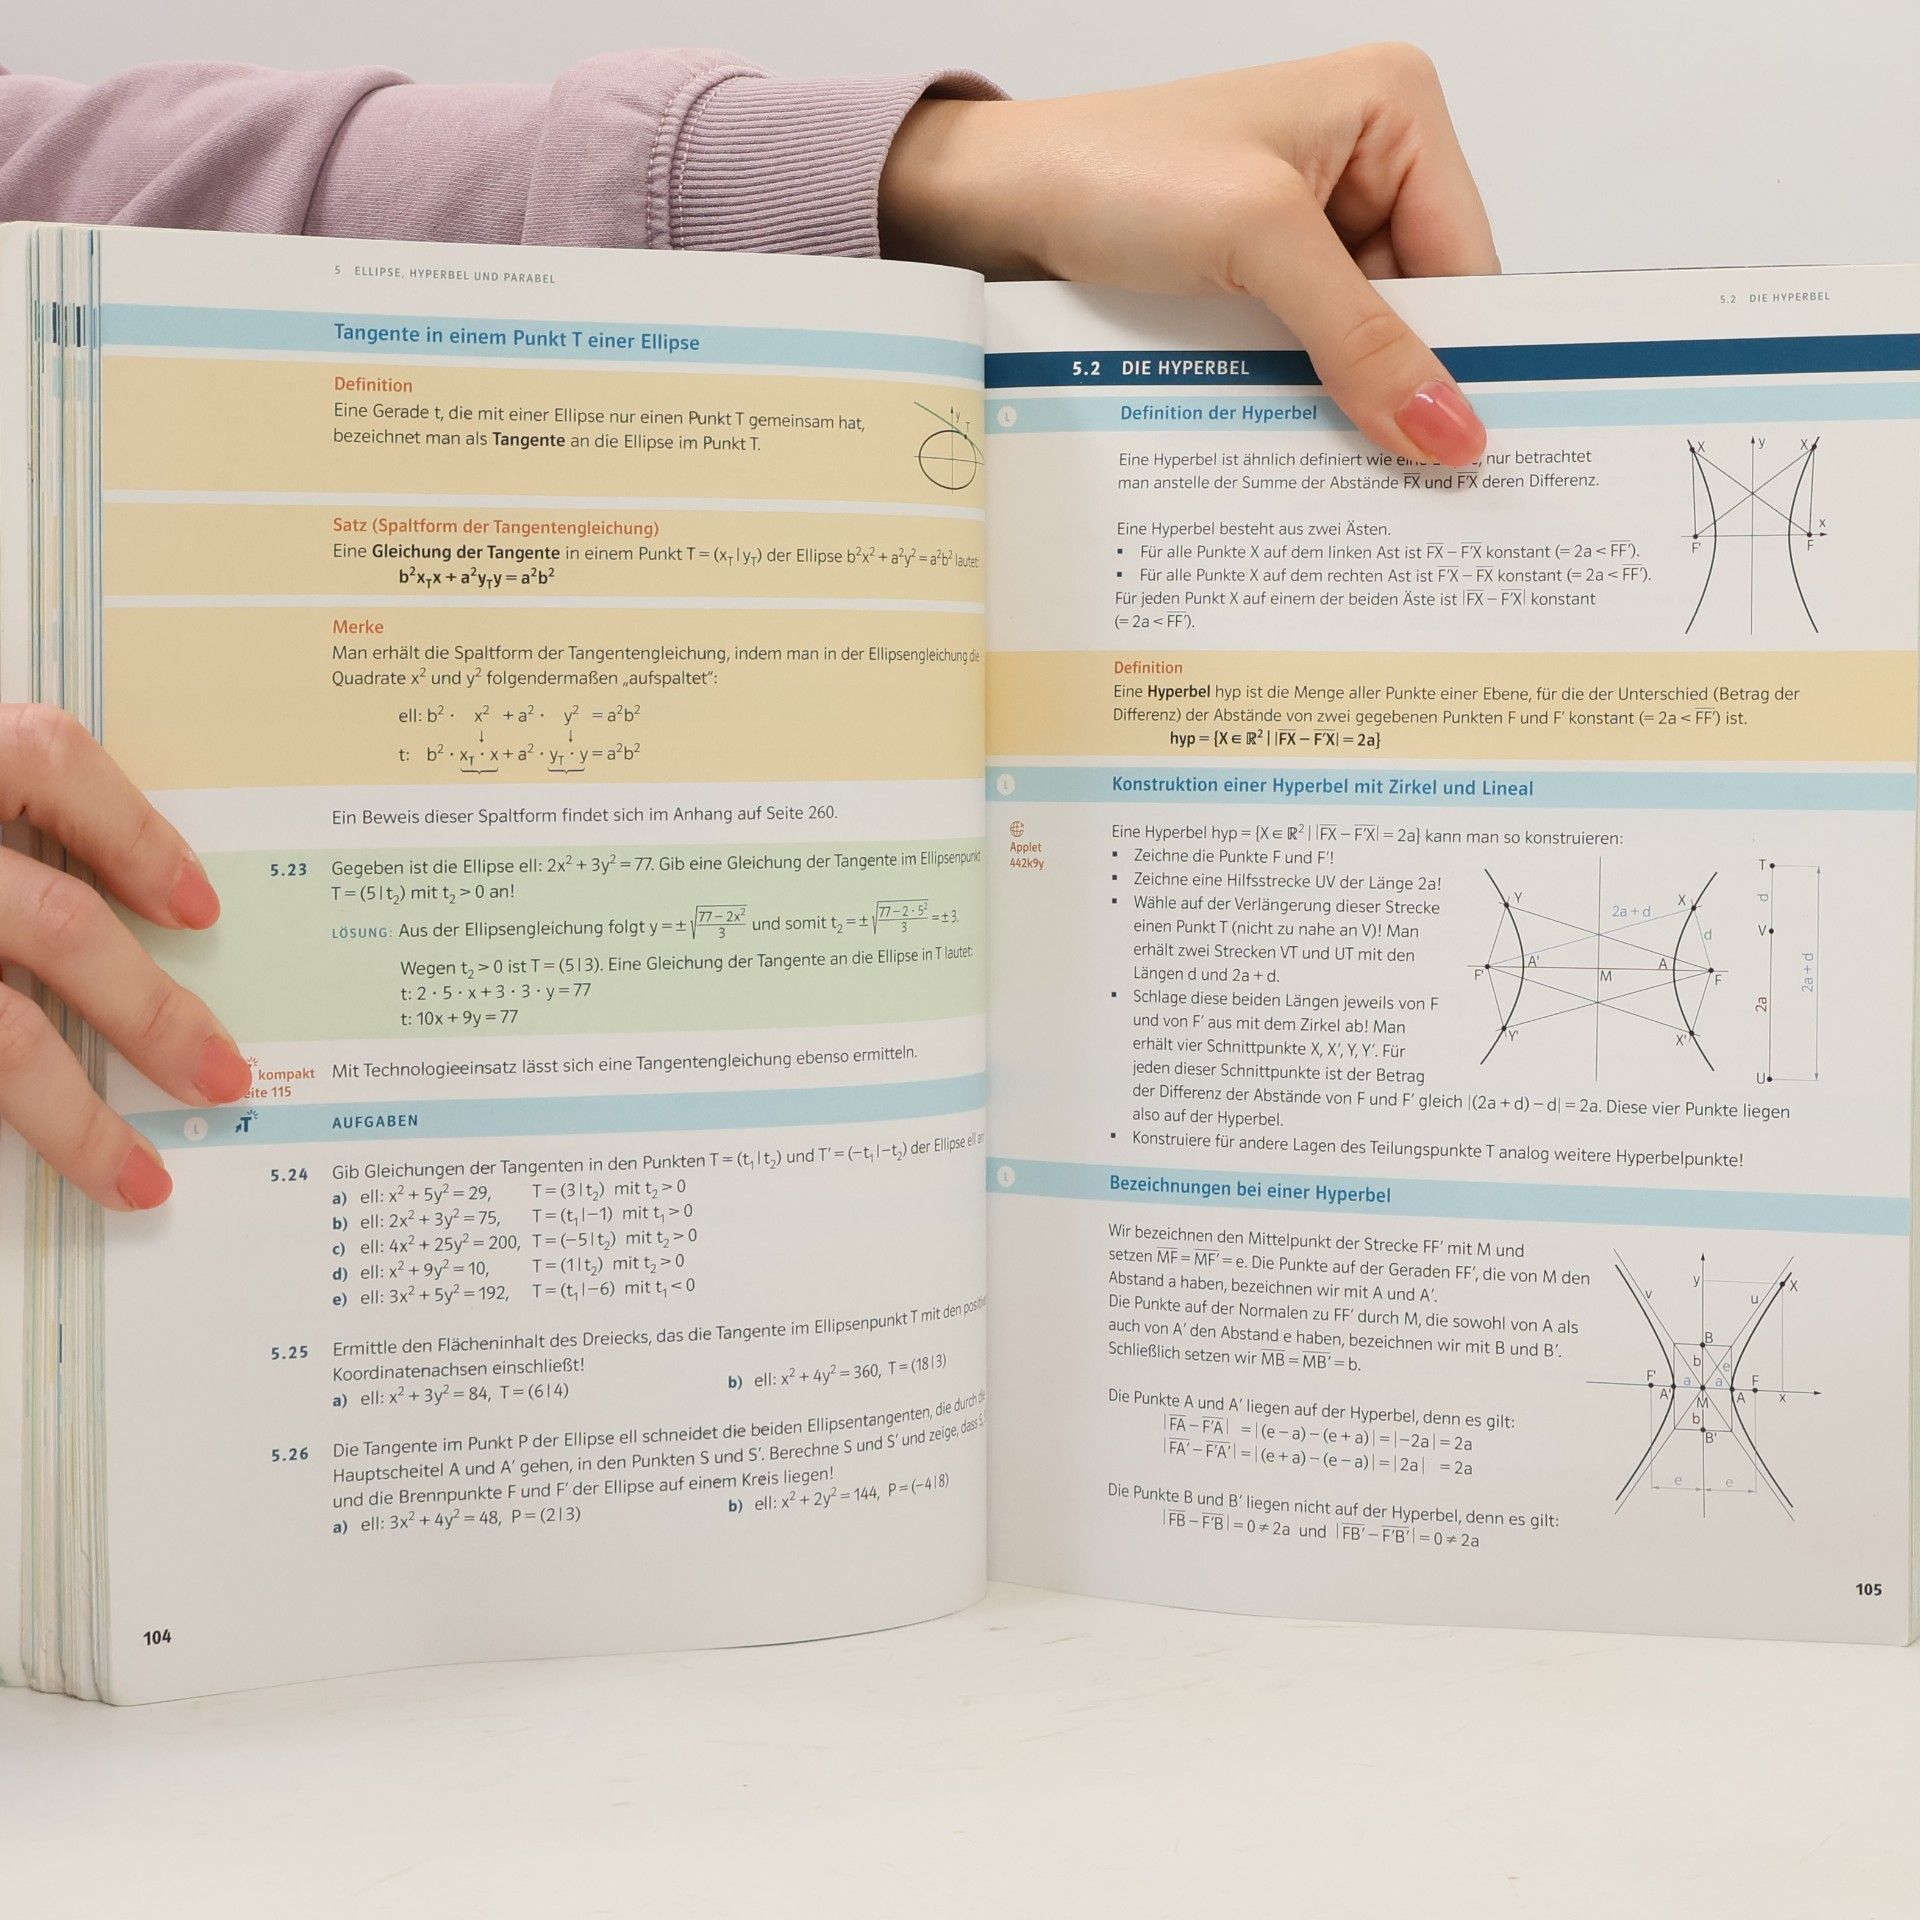 5 ELLIPSE, HYPERBEL UND PARABEL
Tangente in einem Punkt T einer Ellipse
Definition
Eine Gerade t, die mit einer Ellipse nur einen Punkt T gemeinsam hat,
bezeichnet man als Tangente an die Ellipse im Punkt T.
y
T
Satz (Spaltform der Tangentengleichung)
Eine Gleichung der Tangente in einem Punkt T = (x_T | y_T) der Ellipse b²x² + a²y² = a²b² lautet:
b²x_Tx + a²y_Ty = a²b²
Merke
Man erhält die Spaltform der Tangentengleichung, indem man in der Ellipsengleichung die
Quadrate x² und y² folgendermaßen „aufspaltet“:
ell: b² · x² + a² · y² = a²b²
↓ ↓
t: b² · x_T · x + a² · y_T · y = a²b²
Ein Beweis dieser Spaltform findet sich im Anhang auf Seite 260.
5.23 Gegeben ist die Ellipse ell: 2x² + 3y² = 77. Gib eine Gleichung der Tangente im Ellipsenpunkt
T = (5 | t₂) mit t₂ > 0 an!
LÖSUNG: Aus der Ellipsengleichung folgt y = ±√((77 − 2x²)/3) und somit t₂ = ±√((77 − 2 · 5²)/3) = ± 3.
Wegen t₂ > 0 ist T = (5 | 3). Eine Gleichung der Tangente an die Ellipse in T lautet:
t: 2 · 5 · x + 3 · 3 · y = 77
t: 10x + 9y = 77
kompakt
eite 115
Mit Technologieeinsatz lässt sich eine Tangentengleichung ebenso ermitteln.
L T AUFGABEN
5.24 Gib Gleichungen der Tangenten in den Punkten T = (t₁ | t₂) und T′ = (−t₁ | −t₂) der Ellipse ell an
a) ell: x² + 5y² = 29, T = (3 | t₂) mit t₂ > 0
b) ell: 2x² + 3y² = 75, T = (t₁ | −1) mit t₁ > 0
c) ell: 4x² + 25y² = 200, T = (−5 | t₂) mit t₂ > 0
d) ell: x² + 9y² = 10, T = (1 | t₂) mit t₂ > 0
e) ell: 3x² + 5y² = 192, T = (t₁ | −6) mit t₁ < 0
5.25 Ermittle den Flächeninhalt des Dreiecks, das die Tangente im Ellipsenpunkt T mit den
Koordinatenachsen einschließt!
a) ell: x² + 3y² = 84, T = (6 | 4) b) ell: x² + 4y² = 360, T = (18 | 3)
5.26 Die Tangente im Punkt P der Ellipse ell schneidet die beiden Ellipsentangenten, die durch
Hauptscheitel A und A′ gehen, in den Punkten S und S′. Berechne S und S′ und zeige, dass
und die Brennpunkte F und F′ der Ellipse auf einem Kreis liegen!
a) ell: 3x² + 4y² = 48, P = (2 | 3) b) ell: x² + 2y² = 144, P = (−4 | 8)
104
5.2 DIE HYPERBEL
5.2 DIE HYPERBEL
L Definition der Hyperbel
Eine Hyperbel ist ähnlich definiert wie nur betrachtet
man anstelle der Summe der Abstände F̅X̅ und F̅′̅X̅ deren Differenz.
Eine Hyperbel besteht aus zwei Ästen.
▪ Für alle Punkte X auf dem linken Ast ist F̅X̅ − F̅′̅X̅ konstant (= 2a < F̅F̅′̅).
▪ Für alle Punkte X auf dem rechten Ast ist F̅′̅X̅ − F̅X̅ konstant (= 2a < F̅F̅′̅).
Für jeden Punkt X auf einem der beiden Äste ist |F̅X̅ − F̅′̅X̅| konstant
(= 2a < F̅F̅′̅).
X y X
x
F′ F
Definition
Eine Hyperbel hyp ist die Menge aller Punkte einer Ebene, für die der Unterschied (Betrag der
Differenz) der Abstände von zwei gegebenen Punkten F und F′ konstant (= 2a < F̅F̅′̅) ist.
hyp = {X ∈ ℝ² | |F̅X̅ − F̅′̅X̅| = 2a}
L Konstruktion einer Hyperbel mit Zirkel und Lineal
Applet
442k9y
Eine Hyperbel hyp = {X ∈ ℝ² | |F̅X̅ − F̅′̅X̅| = 2a} kann man so konstruieren:
▪ Zeichne die Punkte F und F′!
▪ Zeichne eine Hilfsstrecke UV der Länge 2a!
▪ Wähle auf der Verlängerung dieser Strecke
einen Punkt T (nicht zu nahe an V)! Man
erhält zwei Strecken VT und UT mit den
Längen d und 2a + d.
▪ Schlage diese beiden Längen jeweils von F
und von F′ aus mit dem Zirkel ab! Man
erhält vier Schnittpunkte X, X′, Y, Y′. Für
jeden dieser Schnittpunkte ist der Betrag
der Differenz der Abstände von F und F′ gleich |(2a + d) − d| = 2a. Diese vier Punkte liegen
also auf der Hyperbel.
▪ Konstruiere für andere Lagen des Teilungspunkte T analog weitere Hyperbelpunkte!
Y 2a + d X
d
F′ A′ M A F
Y′ X′
T
d
V
2a
2a + d
U
L Bezeichnungen bei einer Hyperbel
Wir bezeichnen den Mittelpunkt der Strecke FF′ mit M und
setzen M̅F̅ = M̅F̅′̅ = e. Die Punkte auf der Geraden FF′, die von M den
Abstand a haben, bezeichnen wir mit A und A′.
Die Punkte auf der Normalen zu FF′ durch M, die sowohl von A als
auch von A′ den Abstand e haben, bezeichnen wir mit B und B′.
Schließlich setzen wir M̅B̅ = M̅B̅′̅ = b.
Die Punkte A und A′ liegen auf der Hyperbel, denn es gilt:
|F̅A̅ − F̅′̅A̅| = |(e − a) − (e + a)| = |−2a| = 2a
|F̅A̅′̅ − F̅′̅A̅′̅| = |(e + a) − (e − a)| = |2a| = 2a
Die Punkte B und B′ liegen nicht auf der Hyperbel, denn es gilt:
|F̅B̅ − F̅′̅B̅| = 0 ≠ 2a und |F̅B̅′̅ − F̅′̅B̅′̅| = 0 ≠ 2a
y X
v u
B
b e
F′ a a F
A′ M A x
b
B′
e e
105